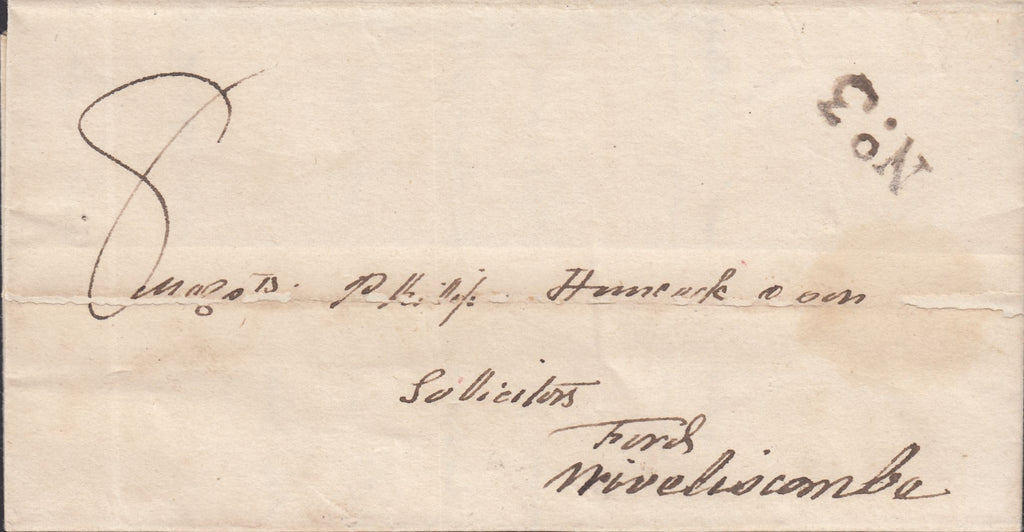 8
No. 3
Philip Hancock & Son
Solicitors
Ford
Wiveliscombe